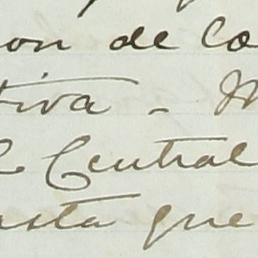 on de Co
tiva - M
l Central
asta que